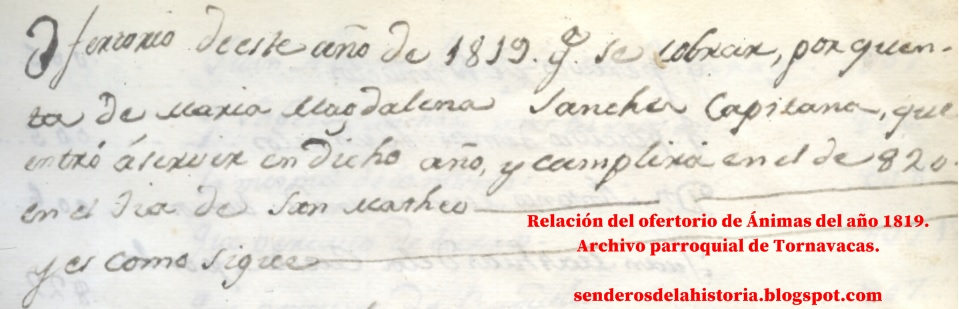 Ofertorio de este año de 1819. q̃ se cobran, por quen-
ta de Maria Magdalena Sanchez Capitana, que
entró á servir en dicho año, y cumplirá en el de 820
en el Dia de San Matheo
y es como sigue
Relación del ofertorio de Ánimas del año 1819.
Archivo parroquial de Tornavacas.
senderosdelahistoria.blogspot.com